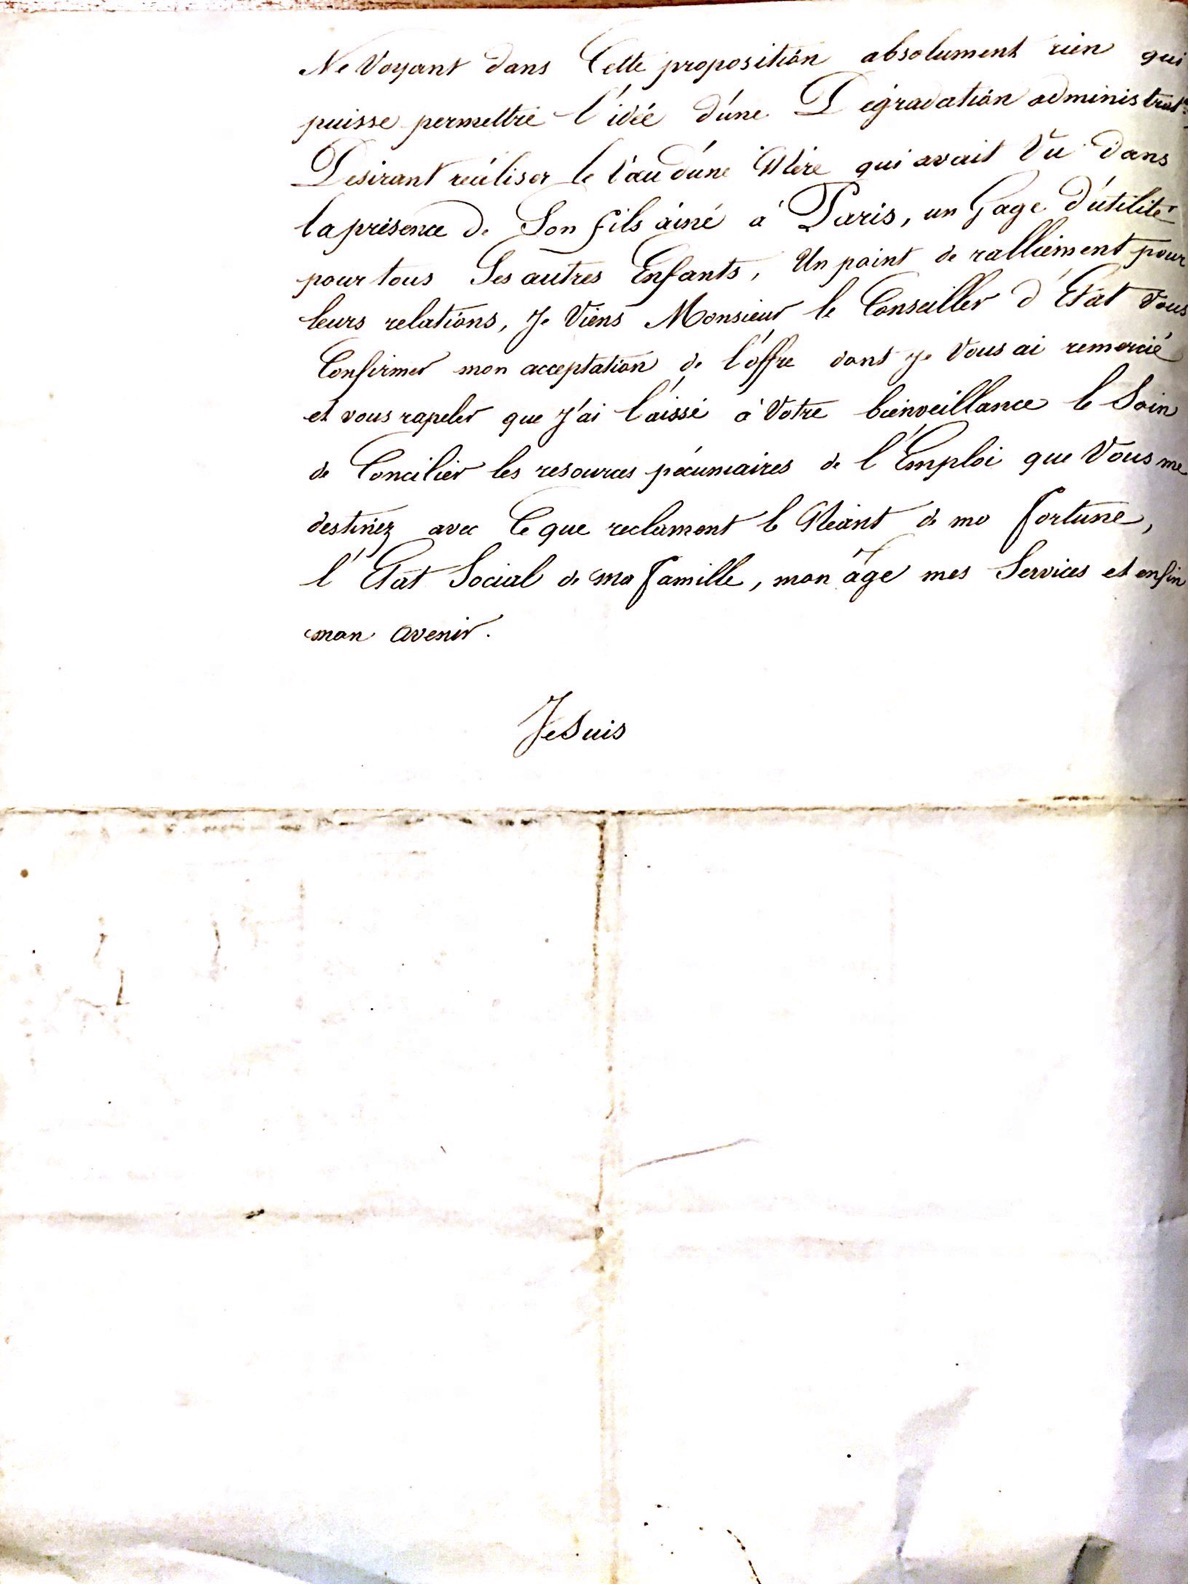 Ne Voyant dans Cette proposition absolument rien qui
puisse permettre l'idée d'une Dégradation administrat.
Desirant réaliser le vœu d'une Mère qui avait Vu dans
la présence de Son fils ainé à Paris, un Gage d'utilité
pour tous Ses autres Enfants, Un point de ralliement pour
leurs relations, Je Viens Monsieur le Conseiller d'Etat Vous
Confirmer mon acceptation de l'offre dont je Vous ai remercié
et vous rapeler que J'ai laissé à Votre bienveillance le Soin
de Concilier les resources pécuniaires de l'Emploi que Vous me
destinez avec Ce que reclament le Néant de ma fortune,
l'Etat Social de ma famille, mon âge mes Services et enfin
mon avenir.
Je Suis